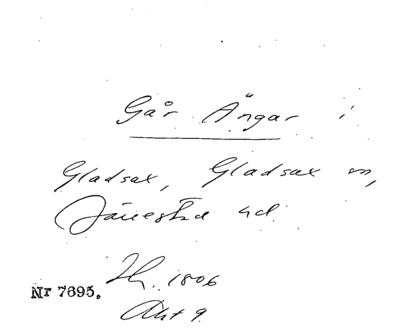 Går Ängar i
Gladsax, Gladsax sn,
Järrestad hd
1806
Nr 7695.
Akt 9